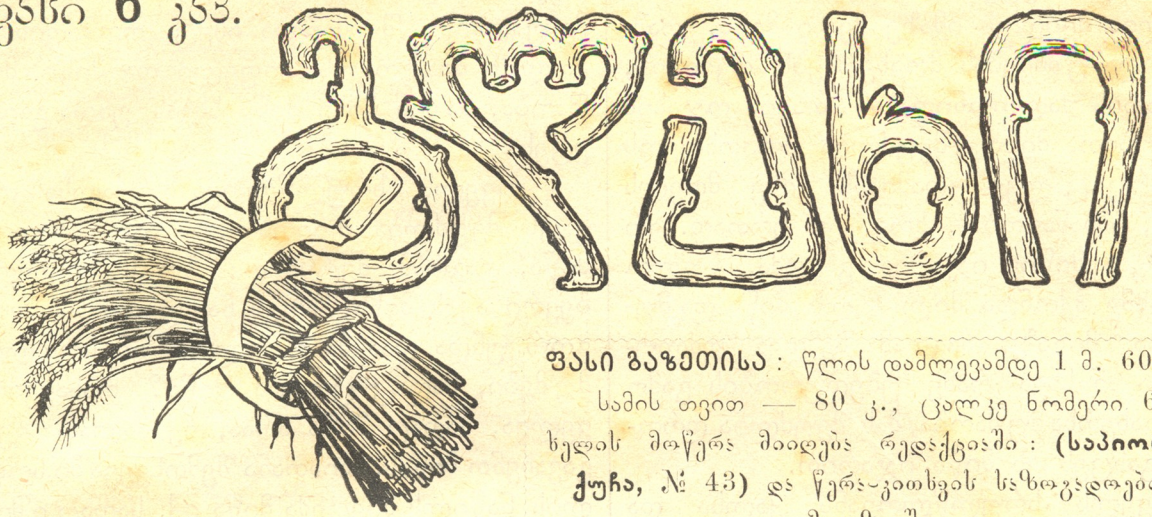 ფასი 6 კაპ.
გლეხი
ფასი გაზეთისა: წლის დამლევამდე 1 მ. 60
სამის თვით — 80 კ., ცალკე ნომერი 6
ხელის მოწერა მიიღება რედაქციაში: (საპიო
ქუჩა, № 43) და წერა-კითხვის საზოგადოება